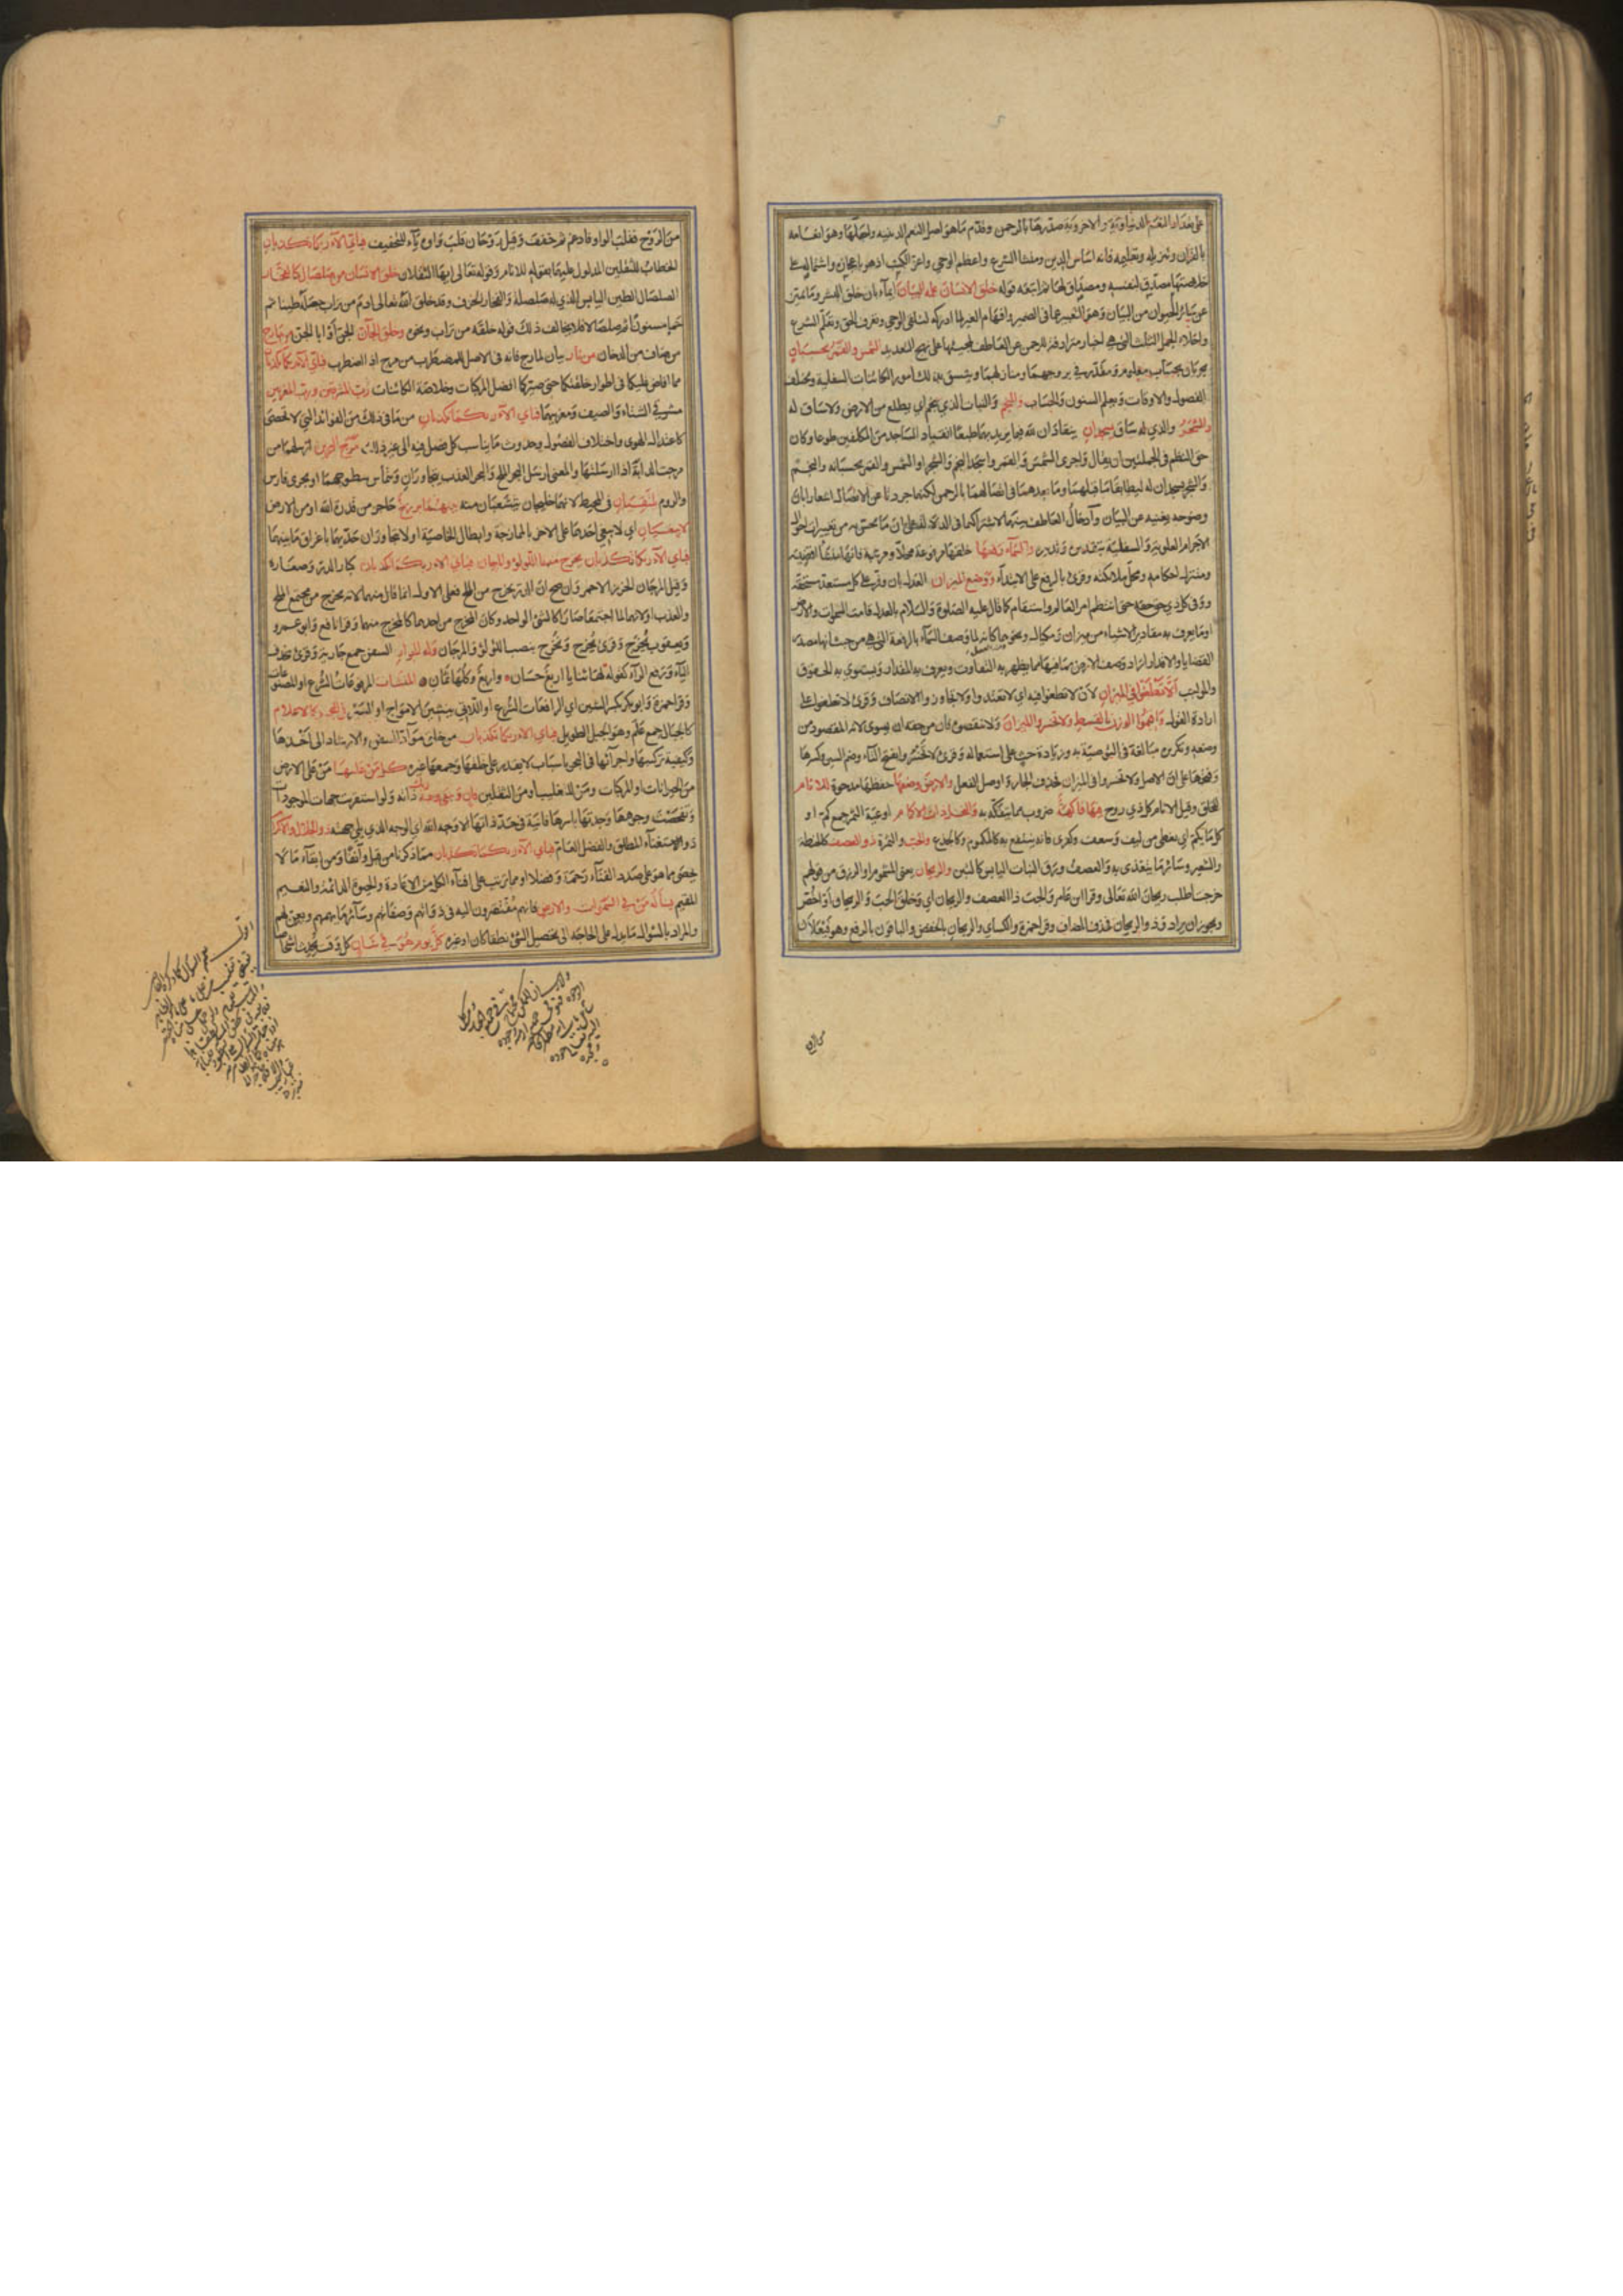 على تعداد النعم الدنياوية والاخروية صدرها بالرحمن وقدم ما هو اصل النعم الدينيه واجلها وهو انعامه
بالقران وتنزيله وتعليمه فانه اساس الدين ومنشا الشرع واعظم الوحي واعز الكتب اذ هو باعجازه واشتماله على
خلاصتها مصدق لنفسه ومصداق لها ثم اتبعه قوله خلق الانسان علمه البيان ايماء بان خلق البشر وما تميز
عن سائر الحيوان من البيان وهو التعبير عما فى الضمير وافهام الغير لما ادركه لتلقى الوحي وتعرف الحق وتعلم الشرع
واخلاء الجمل الثلث التى هي اخبار مترادفة للرحمن عن العاطف لمجيئها على نهج التعديد الشمس والقمر بحسبان
يجريان بحساب معلوم مقدر في بروجهما ومنازلهما ويتسق بذلك امور الكائنات السفلية ويختلف
الفصول والاوقات ويعلم السنون والحساب والنجم والنبات الذي ينجم اي يطلع من الارض ولا ساق له
والشجر والذي له ساق يسجدان ينقادان لله فيما يريد بهما طبعا انقياد الساجد من المكلفين طوعا وكان
حق النظم في الجملتين ان يقال واجرى الشمس والقمر واسجد النجم والشجر او الشمس والقمر بحسبانه والنجم
والشجر يسجدان له ليطابقا ما قبلهما وما بعدهما في اتصالهما بالرحمن لكنهما جردتا عن الاتصال اشعارا بان
وضوحه يغنيه عن البيان وادخال العاطف بينهما لاشتراكهما في الدلالة على ان ما يحس به من تغيرات احوال
الاجرام العلوية والسفلية بتقديره وتدبيره والسماء رفعها خلقها مرفوعة محلا ومرتبة فانها منشا اقضيته
ومتنزل احكامه ومحل ملائكته وقرئ بالرفع على الابتداء ووضع الميزان العدل بان وفر على كل مستعد مستحقه
ووفى كل ذي حق حقه حتى انتظم امر العالم واستقام كما قال عليه الصلوة والسلام بالعدل قامت السموات والارض
او ما يعرف به مقادير الاشياء من ميزان ومكيال ونحوهما كانه لما وصف السماء بالرفعة التى هي من حيث انها مصدر
القضايا والاقدار اراد وصف الارض بما فيها مما يظهر به التفاوت ويعرف به المقدار ويستوي به الحقوق
والمواجب الا تطغوا في الميزان لان لا تطغوا فيه اي لا تعتدوا ولا تجاوزوا الانصاف وقرئ لا تطغوا على
ارادة القول واقيموا الوزن بالقسط ولا تخسروا الميزان ولا تنقصوه فان من حقه ان يسوى لانه المقصود من
وضعه وتكريره مبالغة في التوصية به وزيادة حث على استعماله وقرئ لا تخسروا بفتح التاء وضم السين وكسرها
وفتحها على ان الاصل ولا تخسروا في الميزان فحذف الجار واوصل الفعل والارض وضعها خفضها مدحوة للانام
للخلق وقيل الانام كل ذي روح فيها فاكهة ضروب مما يتفكه به والنخل ذات الاكمام اوعية التمر جمع كم او
كل ما يكم اي يغطى من ليف وسعف وكفرى فانه ينتفع به كالمكموم وكالجذع والحب والثمرة ذو العصف كالحنطة
والشعير وسائر ما يتغذى به والعصف ورق النبات اليابس كالتبن والريحان يعنى المشموم او الرزق من قولهم
خرجت اطلب ريحان الله تعالى وقرا ابن عامر والحب ذا العصف والريحان اي وخلق الحب والريحان او اخص
ويجوز ان يراد وذو الريحان فحذف المضاف وقرا حمزة والكساي والريحان بالخفض والباقون بالرفع وهو فيعلان
من الروح فقلبت الواو ياء وادغم ثم خفف وقيل روحان قلبت واوه ياء للتخفيف فباي الاء ربكما تكذبان
الخطاب للثقلين المدلول عليهما بقوله للانام وقوله تعالى ايها الثقلان خلق الانسان من صلصال كالفخار
الصلصال الطين اليابس الذي له صلصلة والفخار الخزف وقد خلق الله تعالى ادم من تراب جعله طينا ثم
حما مسنونا ثم صلصالا فلا يخالف ذلك قوله خلقه من تراب ونحوه وخلق الجان الجن او ابا الجن من مارج
من صاف من الدخان من نار بيان لمارج فانه فى الاصل للمضطرب من مرج اذا اضطرب فباي الاء ربكما تكذبان
مما افاض عليكما في اطوار خلقتكما حتى صيركما افضل المركبات وخلاصة الكائنات رب المشرقين ورب المغربين
مشرقي الشتاء والصيف ومغربيهما فباي الاء ربكما تكذبان من ما في ذلك من الفوائد التي لا تحصى
كاعتدال الهوى واختلاف الفصول وحدوث ما يناسب كل فصل فيه الى غير ذلك مرج البحرين ارسلهما من
مرجت الدابة اذا ارسلتها والمعنى ارسل البحر الملح والبحر العذب يلتقيان يتجاوران ويتماس سطوحهما او بحري فارس
والروم يلتقيان في المحيط لانهما خليجان يتشعبان منه بينهما برزخ حاجز من قدرة الله او من الارض
لا يبغيان اي لا يبغي احدهما على الاخر بالممازجة وابطال الخاصية او لا يتجاوزان حديهما باغراق ما بينهما
فباي الاء ربكما تكذبان يخرج منهما اللؤلؤ والمرجان فباي الاء ربكما تكذبان كبار الدر وصغاره
وقيل المرجان الخرز الاحمر وان صح ان الدر يخرج من الملح فعلى الاول انما قال منهما لانه يخرج من مجتمع الملح
والعذب او لانهما لما اجتمعا صارا كالشئ الواحد وكان المخرج من احدهما كالمخرج منهما وقرا نافع وابو عمرو
ويعقوب يُخرَج وقرئ نُخرج ويُخرج بنصب اللؤلؤ والمرجان وله الجوار السفن جمع جارية وقرئ بحذف
الياء ورفع الراء كقوله لها ثنايا اربع حسان واربع وكلها ثمان المنشات المرفوعات الشرع او المصنوعات
وقرا حمزة وابو بكر بكسر الشين اي الرافعات الشرع او اللاتي ينشين الامواج او السير في البحر كالاعلام
كالجبال جمع علم وهو الجبل الطويل فباي الاء ربكما تكذبان من خلق مواد السفن والارشاد الى اخذها
وكيفية تركيبها واجرائها في البحر باسباب لا يقدر على خلقها وجمعها غيره كل من عليها من على الارض
من الحيوانات او المركبات ومن للتغليب او من الثقلين فان ويبقى وجه ربك ذاته ولو استقريت جهات الموجودات
وتفحصت وجوهها وجدتها باسرها فانية في حد ذاتها الا وجه الله اي الوجه الذي يلي جهته ذو الجلال والاكرام
ذو الاستغناء المطلق والفضل العام فباي الاء ربكما تكذبان مما ذكرنا من قبل وآنفا ومن ابقاء ما لا
يحصى مما هو على صدد الفناء رحمة وفضلا او مما ترتب على افناء الكل من الاعادة والحيوة الدائمة والنعيم
المقيم يساله من في السموات والارض فانهم مفتقرون اليه في ذواتهم وصفاتهم وسائر ما يهمهم ويعن لهم
والمراد بالسؤال ما يدل على الحاجة الى تحصيل الشئ نطقا كان او غيره كل يوم هو في شان كل وقت يحدث اشخاصا